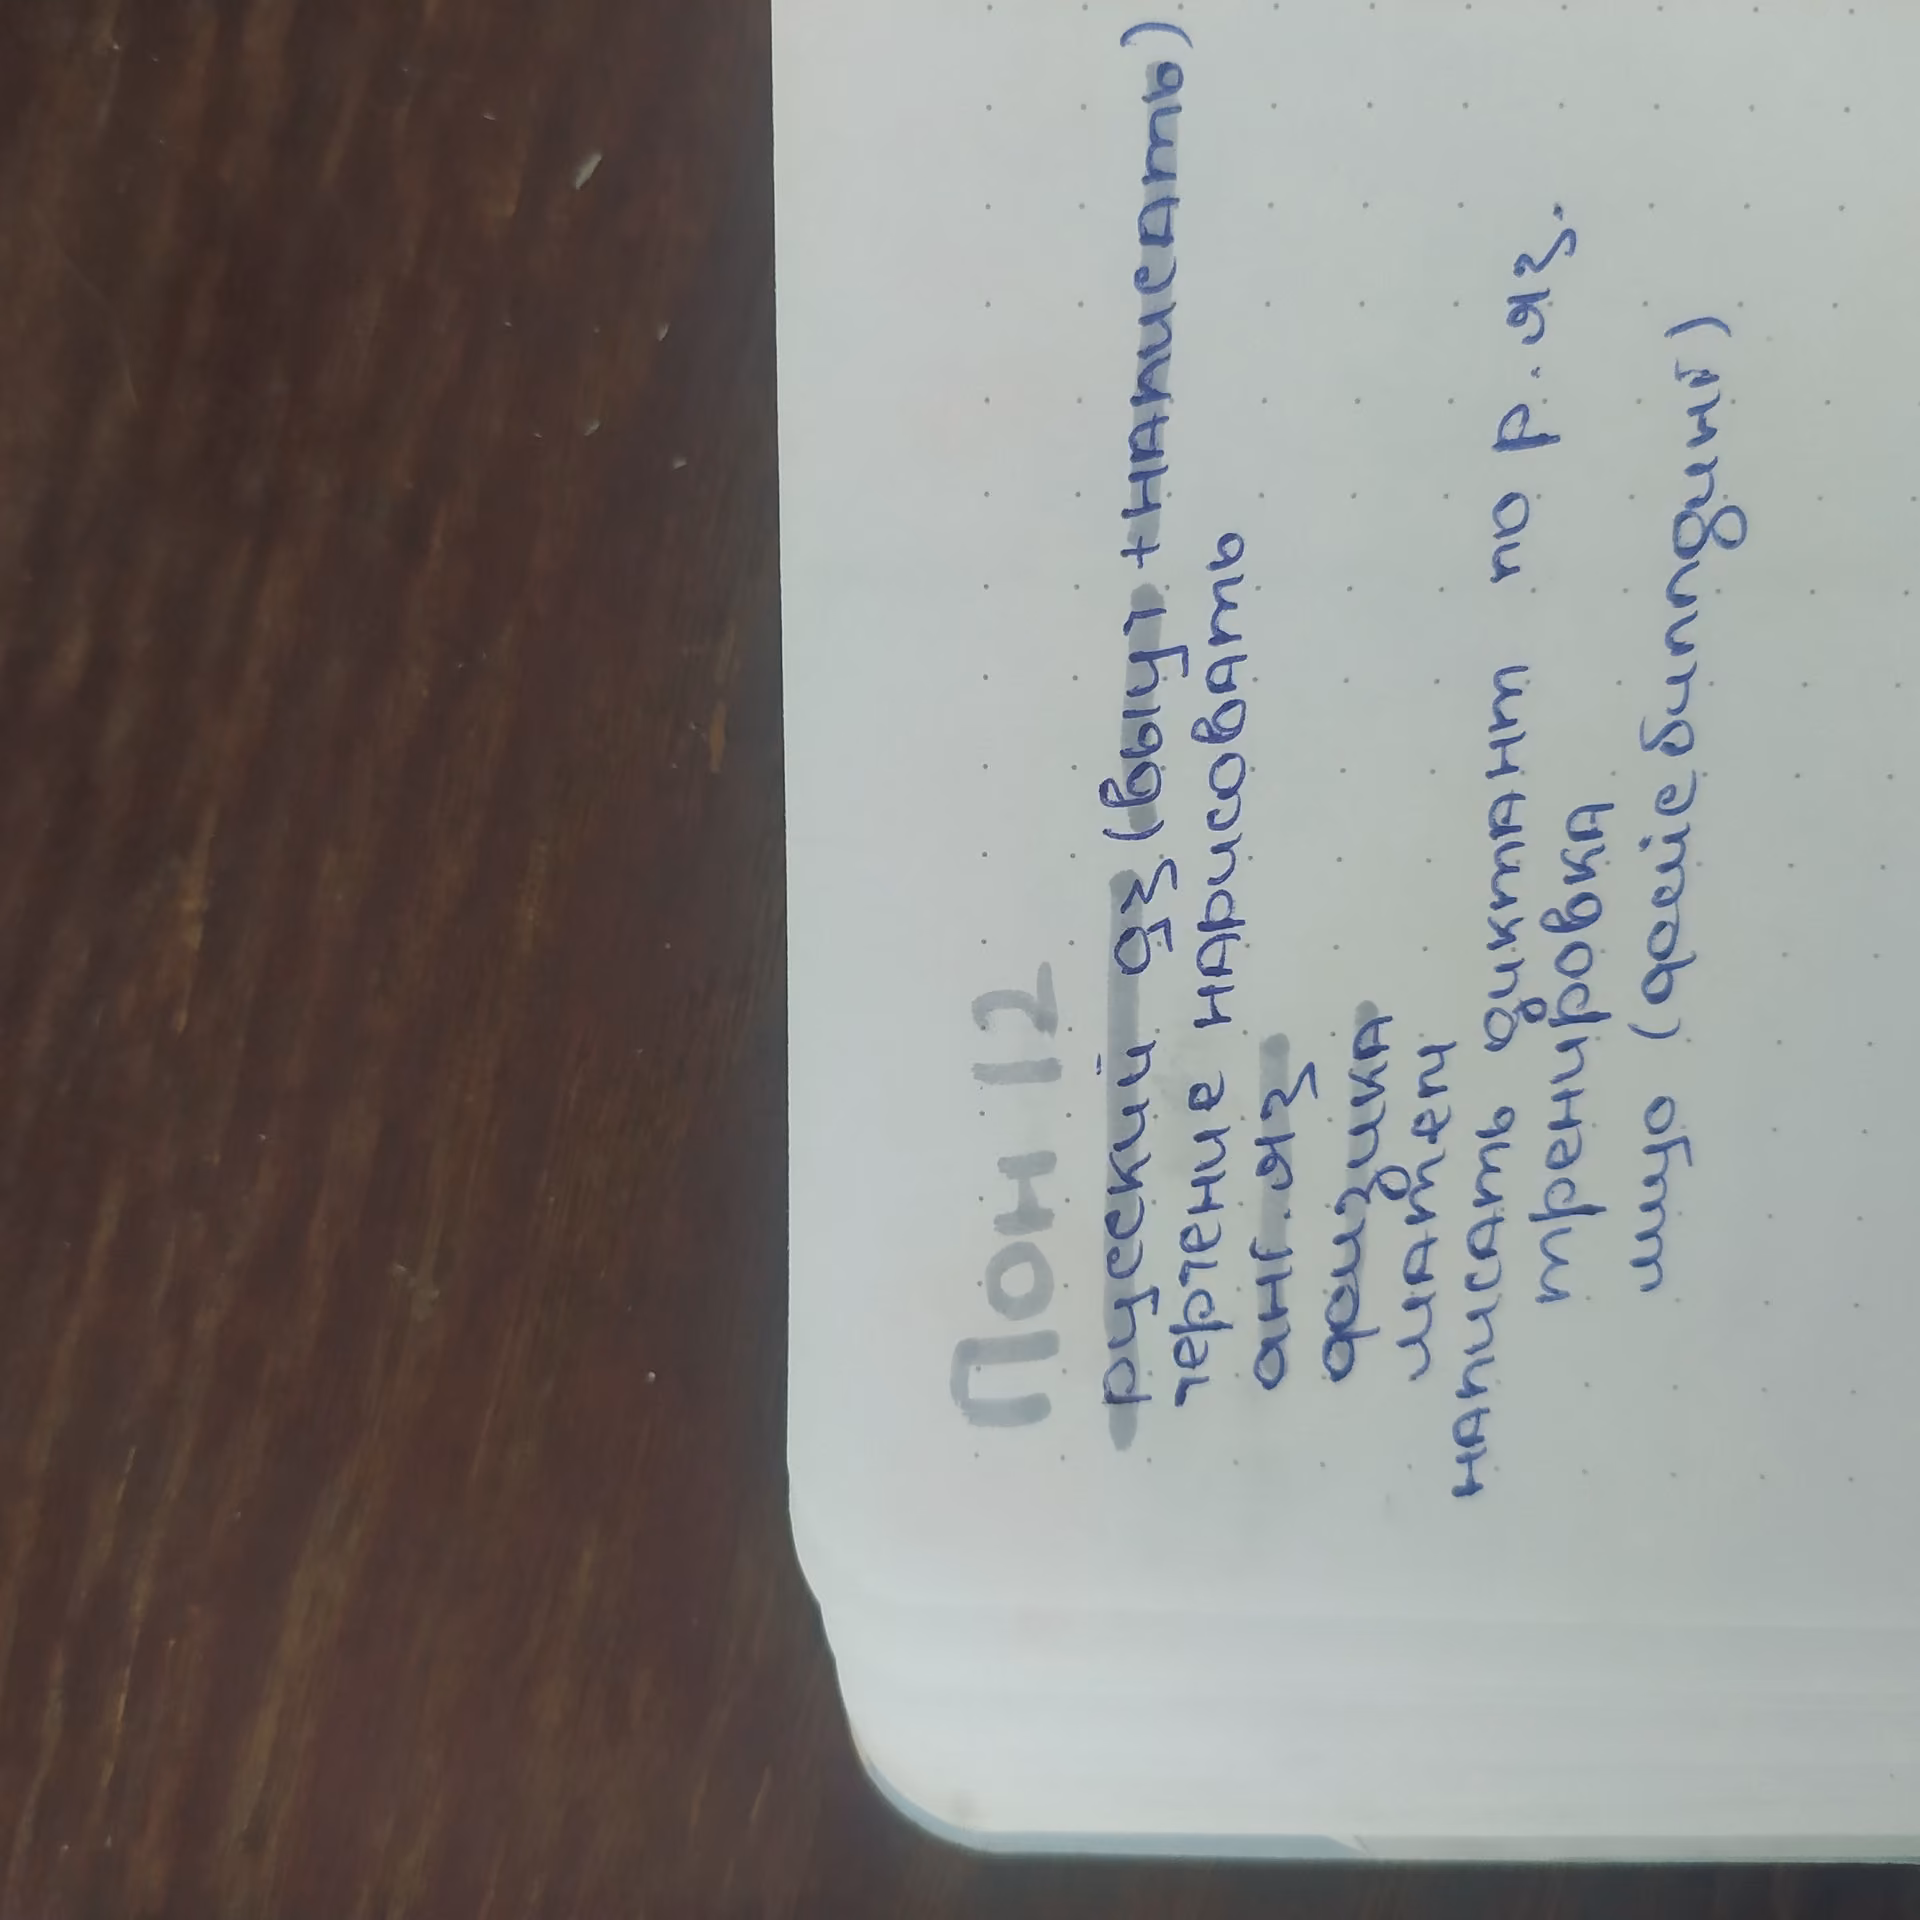 Пон 12
русский дз (выуч + написать)
черчение нарисовать
анг. яз
физика
матем
написать диктант по р. яз.
тренировка
лицо (фейсбилдинг)